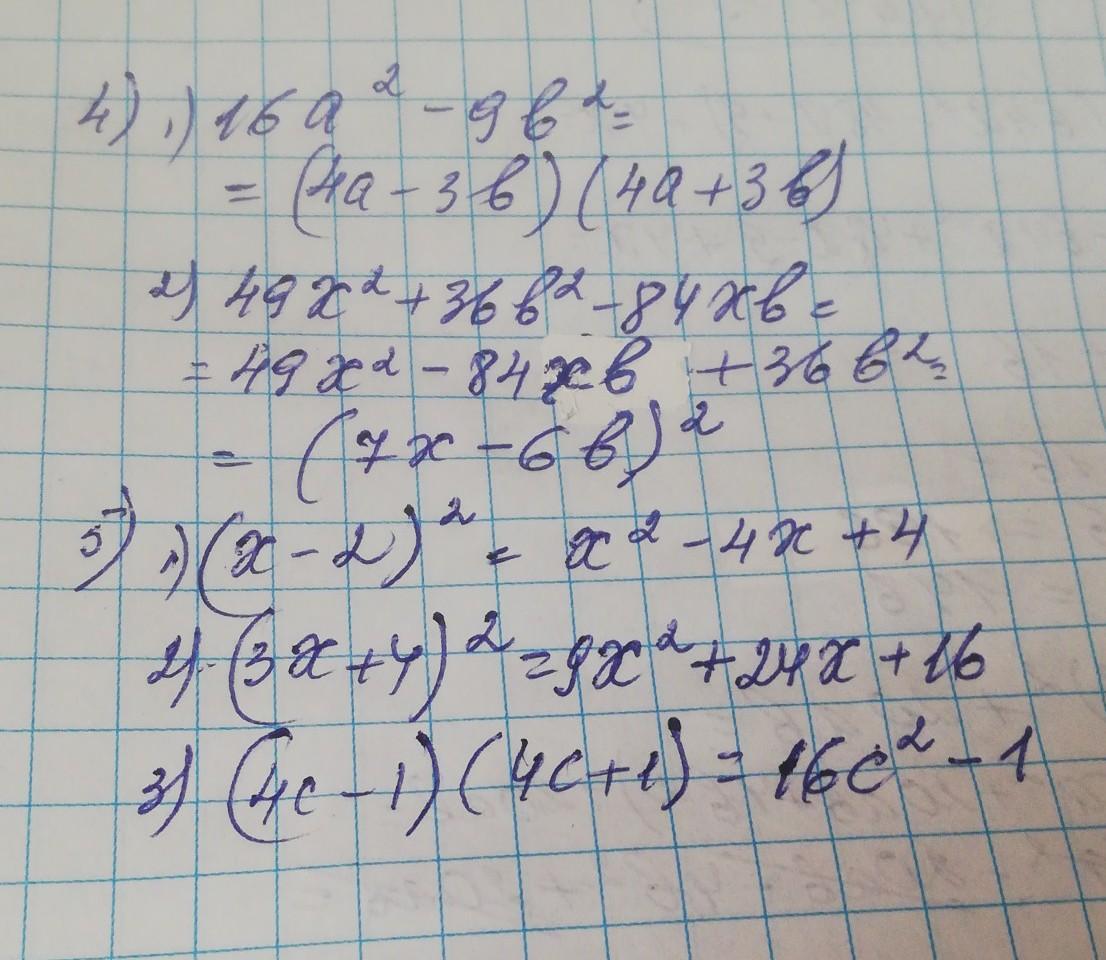 4) 1) 16a² - 9b² =
= (4a - 3b)(4a + 3b)
2) 49x² + 36b² - 84xb =
= 49x² - 84xb + 36b² =
= (7x - 6b)²
5) 1) (x - 2)² = x² - 4x + 4
2) (3x + 4)² = 9x² + 24x + 16
3) (4c - 1)(4c + 1) = 16c² - 1